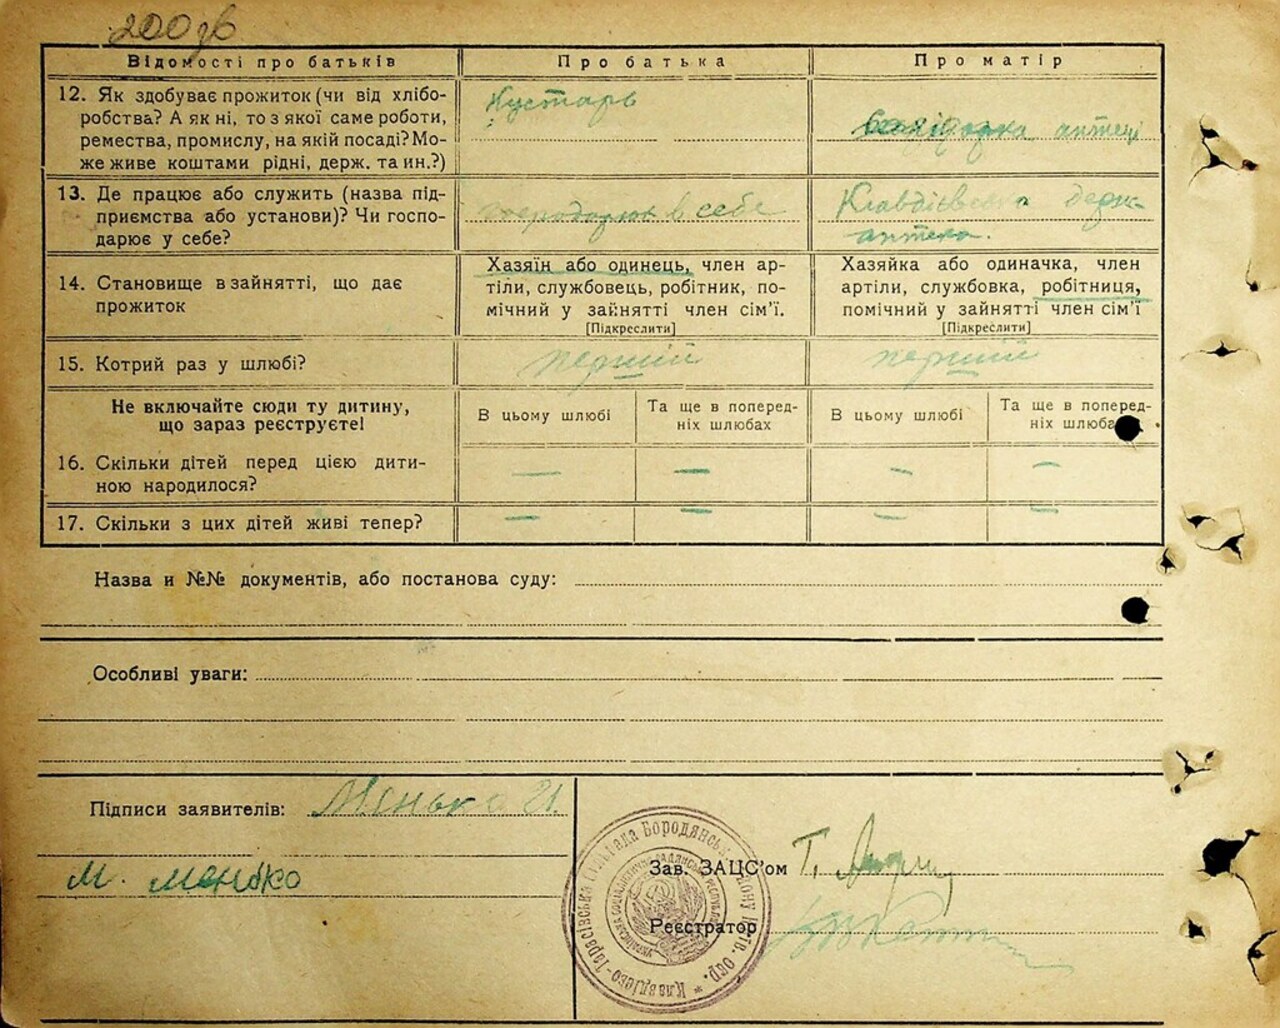 200 зв
Відомості про батьків
Про батька
Про матір
12. Як здобуває прожиток (чи від хлібо-
робства? А як ні, то з якої саме роботи,
ремества, промислу, на якій посаді? Мо-
же живе коштами рідні, держ. та ин.?)
Кустарь
аптеці
13. Де працює або служить (назва під-
приємства або установи)? Чи госпо-
дарює у себе?
в себе
Клавдієвська держ-
аптека.
14. Становище в зайнятті, що дає
прожиток
Хазяїн або одинець, член ар-
тіли, службовець, робітник, по-
мічний у зайнятті член сім'ї.
[Підкреслити]
Хазяйка або одиначка, член
артіли, службовка, робітниця,
помічний у зайнятті член сім'ї
[Підкреслити]
15. Котрий раз у шлюбі?
перший
перший
Не включайте сюди ту дитину,
що зараз реєструєте!
В цьому шлюбі
Та ще в поперед-
ніх шлюбах
В цьому шлюбі
Та ще в поперед-
ніх шлюбах
16. Скільки дітей перед цією дити-
ною народилося?
— — — —
17. Скільки з цих дітей живі тепер?
— — — —
Назва и №№ документів, або постанова суду:
Особливі уваги:
Підписи заявителів: Менько И.
М. Менько
Зав. ЗАЦС'ом Т.
Реєстратор
Клавдієво-Тарасівська сільрада Бородянськ. району Київ. окр.